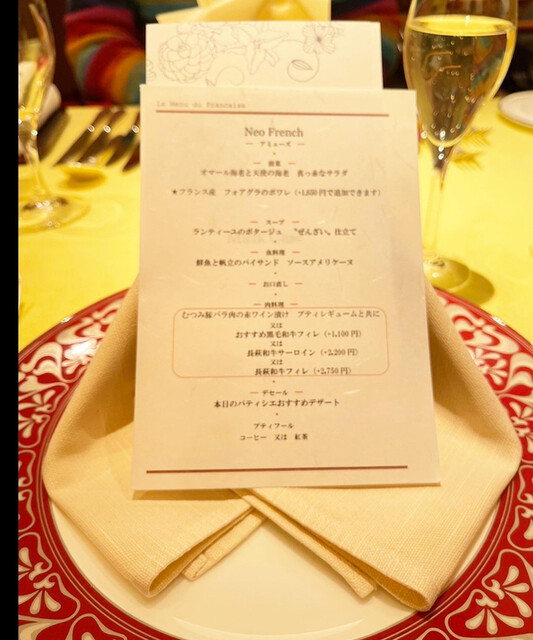 Le Menu de Francaise
Neo French
― アミューズ ―
― 前菜 ―
オマール海老と天使の海老　真っ赤なサラダ
★フランス産　フォアグラのポワレ（+1,650円で追加できます）
― スープ ―
ランティーユのポタージュ　〝ぜんざい〟仕立て
― 魚料理 ―
鮮魚と帆立のパイサンド　ソースアメリケーヌ
― お口直し ―
― 肉料理 ―
むつみ豚バラ肉の赤ワイン漬け　プティレギュームと共に
又は
おすすめ黒毛和牛フィレ（+1,100円）
又は
長萩和牛サーロイン（+2,200円）
又は
長萩和牛フィレ（+2,750円）
― デセール ―
本日のパティシエおすすめデザート
プティフール
コーヒー　又は　紅茶